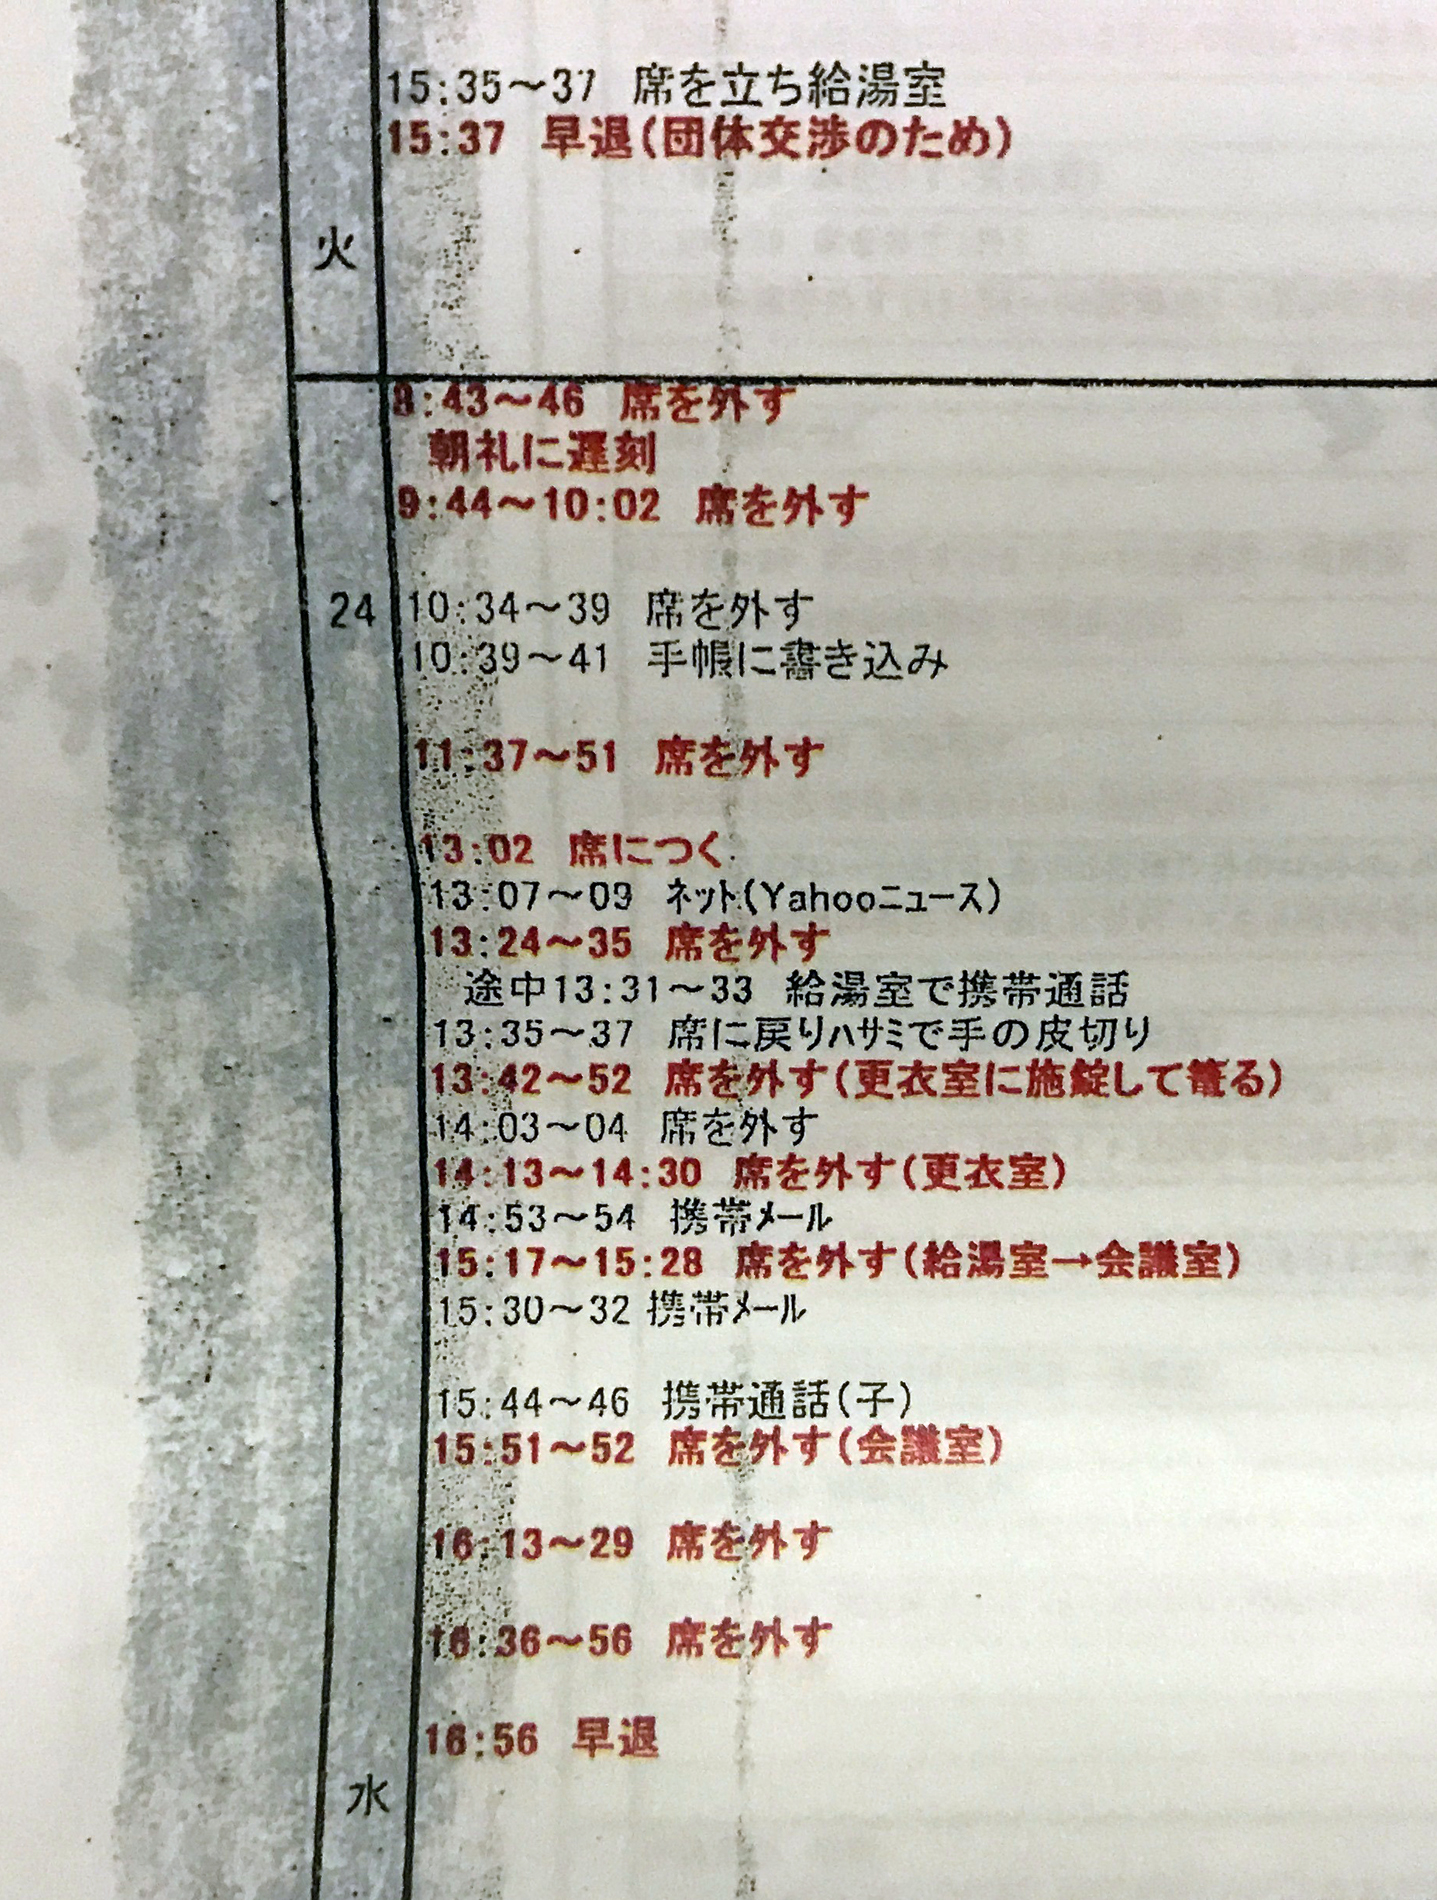 15:35～37 席を立ち給湯室
15:37 早退(団体交渉のため)
火
8:43～46 席を外す
朝礼に遅刻
9:44～10:02 席を外す
24
10:34～39 席を外す
10:39～41 手帳に書き込み
11:37～51 席を外す
13:02 席につく
13:07～09 ﾈｯﾄ(Yahooﾆｭｰｽ)
13:24～35 席を外す
途中13:31～33 給湯室で携帯通話
13:35～37 席に戻りﾊｻﾐで手の皮切り
13:42～52 席を外す(更衣室に施錠して篭る)
14:03～04 席を外す
14:13～14:30 席を外す(更衣室)
14:53～54 携帯ﾒｰﾙ
15:17～15:28 席を外す(給湯室→会議室)
15:30～32 携帯ﾒｰﾙ
15:44～46 携帯通話(子)
15:51～52 席を外す(会議室)
16:13～29 席を外す
16:36～56 席を外す
16:56 早退
水